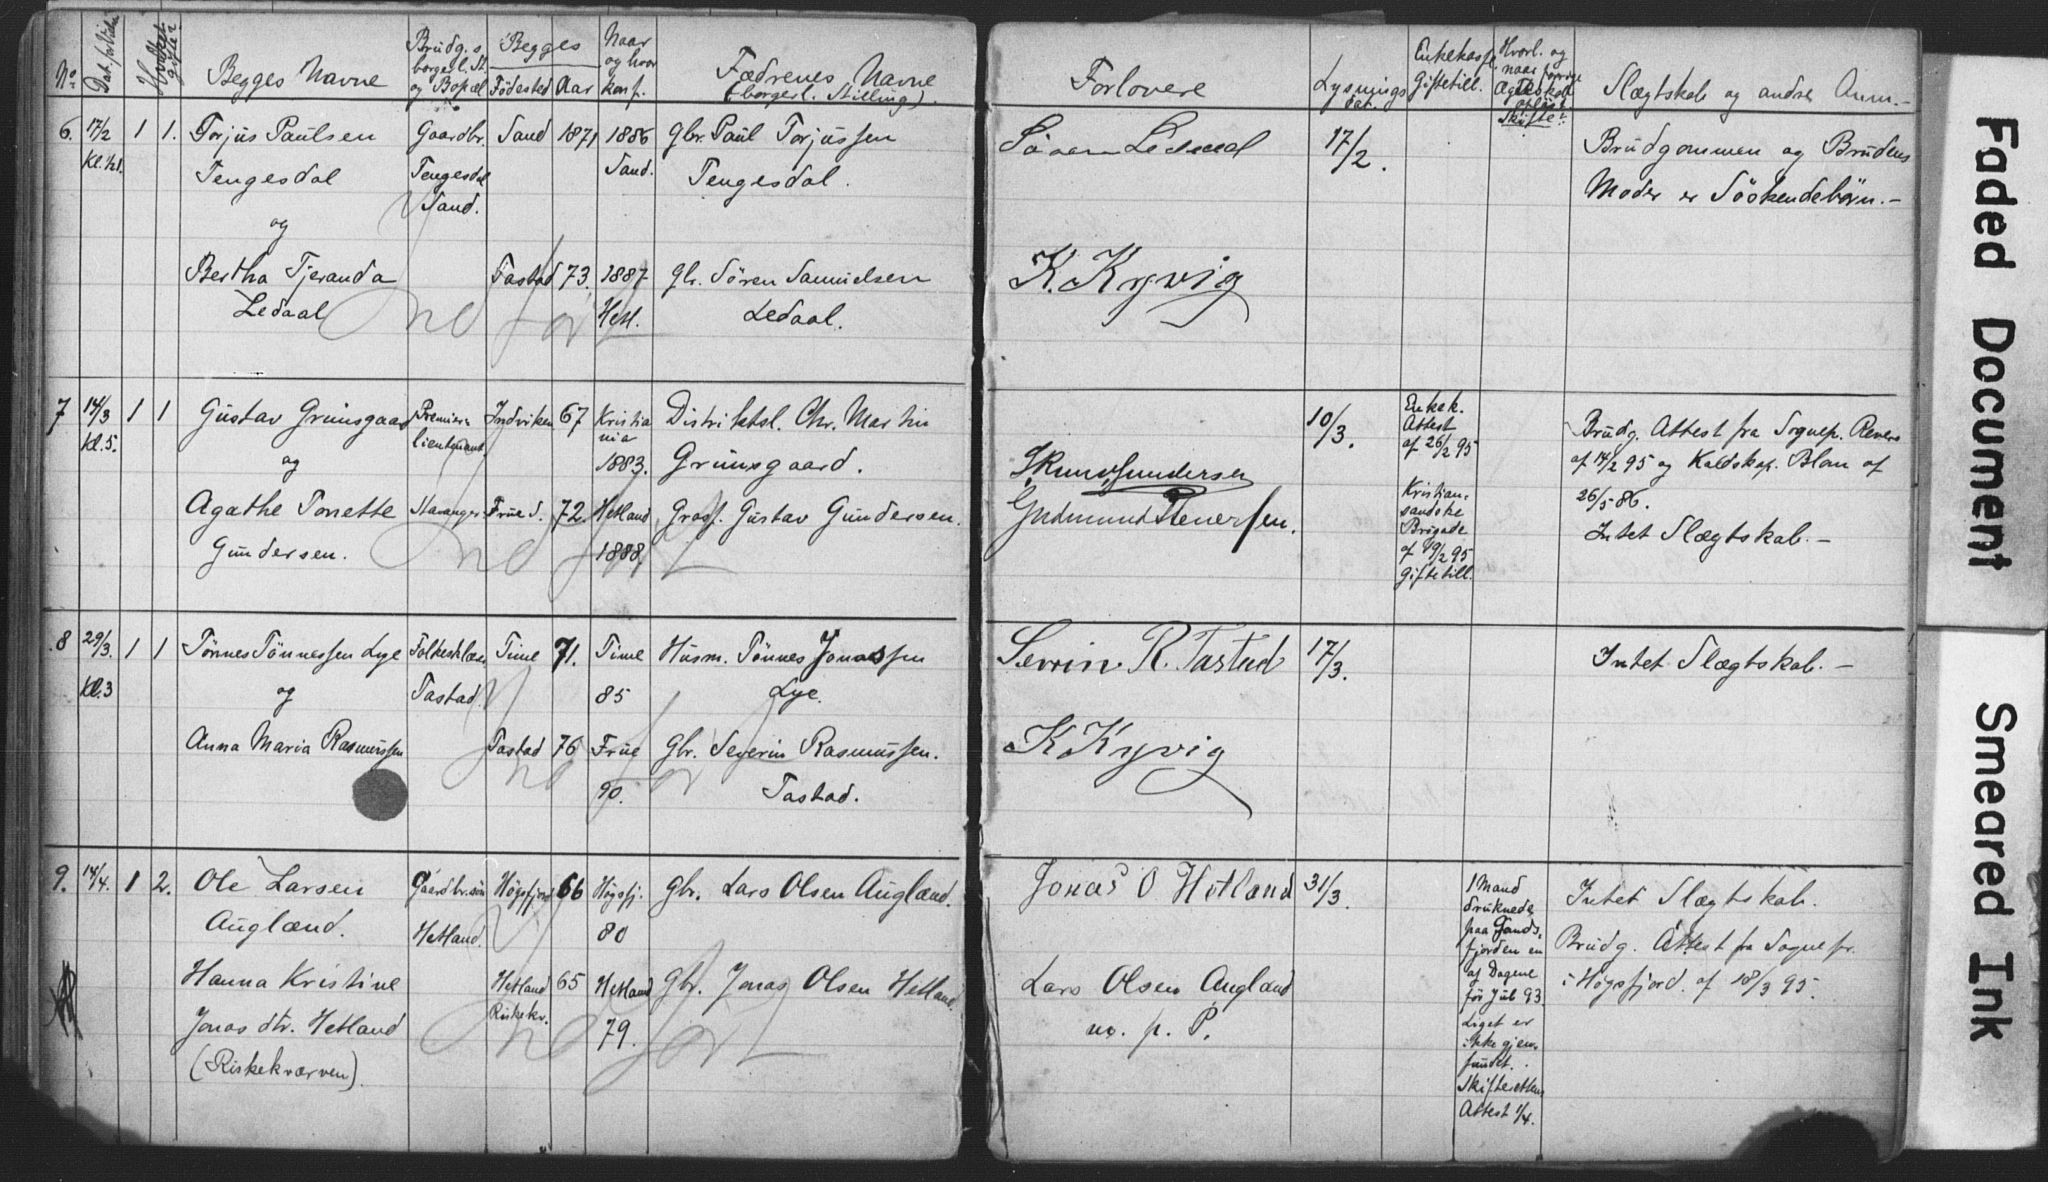 No Dat. for Vielsen Hvilket gifte Begges Navne Brudg.s borgerl. St. og Bopæl Begges Naar og hvor konf. Fædrenes Navne
Födested Aar (borgerl. Stilling).
Forlovere Lysnings dat. Enkekasse Giftetill. Hvorl. og naar forrige Ægteskab opløst. Skifte? Slægtskab og andre Anm.
6. 17/2 1 1. Torjus Paulsen Gaardbr. Sand 1871 1886 Gbr. Paul Torjussen
Kl. ½1. Tengesdal Tengesdal Sand. Tengesdal.
Sand.
og
Bertha Tjeranda Tastad 73. 1887 Gbr. Sören Samuelsen
Ledaal Hetl. Ledaal.
Indført
Sören Ledaal 17/2. Brudgommen og Brudens
Moder er Söskendebörn.-
K. Kyvig
7 14/3 1 1 Gustav Grimsgaard Premier- Indviken 67 Kristiania Distriktsl. Chr. Martin
Kl. 5. lieutenant 1883. Grimsgaard.
og
Agathe Tonette Stavanger Frue S. 72. Hetland Gross. Gustav Gundersen.
Gundersen. 1888.
Indført
10/3. Enkek. Brudg. Attest fra Sognep.
Attest af 14/2 95 og Koldskop. Blan af
af 26/2 95 26/5 86.
Kristian- Intet Slægtskab.-
sandske
Brigade
af 19/2 95
Giftetill.
Gundersen
Gudmund
8 29/3. 1 1 Tönnes Tönnessen Lye Folkeskolelærer Time 71. Time Husm. Tönnes Jonassen
Kl. 3 og Tastad. 85 Lye.
Anna Maria Rasmussen Tastad 76 Frue Gbr. Severin Rasmussen.
90. Tastad.
Indført
Sevrin R. Tastad 17/3. Intet Slægtskab.-
K Kyvig
9. 14/4. 1 2. Ole Larsen Gaardbr.sön Högsfjord 66 Högsfj. Gbr. Lars Olsen Auglænd.
Auglænd. Hetland. 80
Hanna Kristine Hetland 65 Hetland Gbr. Jonas Olsen Hetland
Jonas dtr. Hetland Riskekv. 79.
(Riskekværven).
Indført
Jonas O Hetland 31/3. 1 Mand Intet Slægtskab.
druknede
paa Gands- Brudg. Attest fra Sognepr.
fjorden en
Lars Olsen Augland af Dagene i Högsfjord. af 18/3 95.
m. p. P. før Jul 93
Liget er
ikke gjen-
fundet.
Skifterettens
Attest 1/4.
Faded Document
Smeared Ink